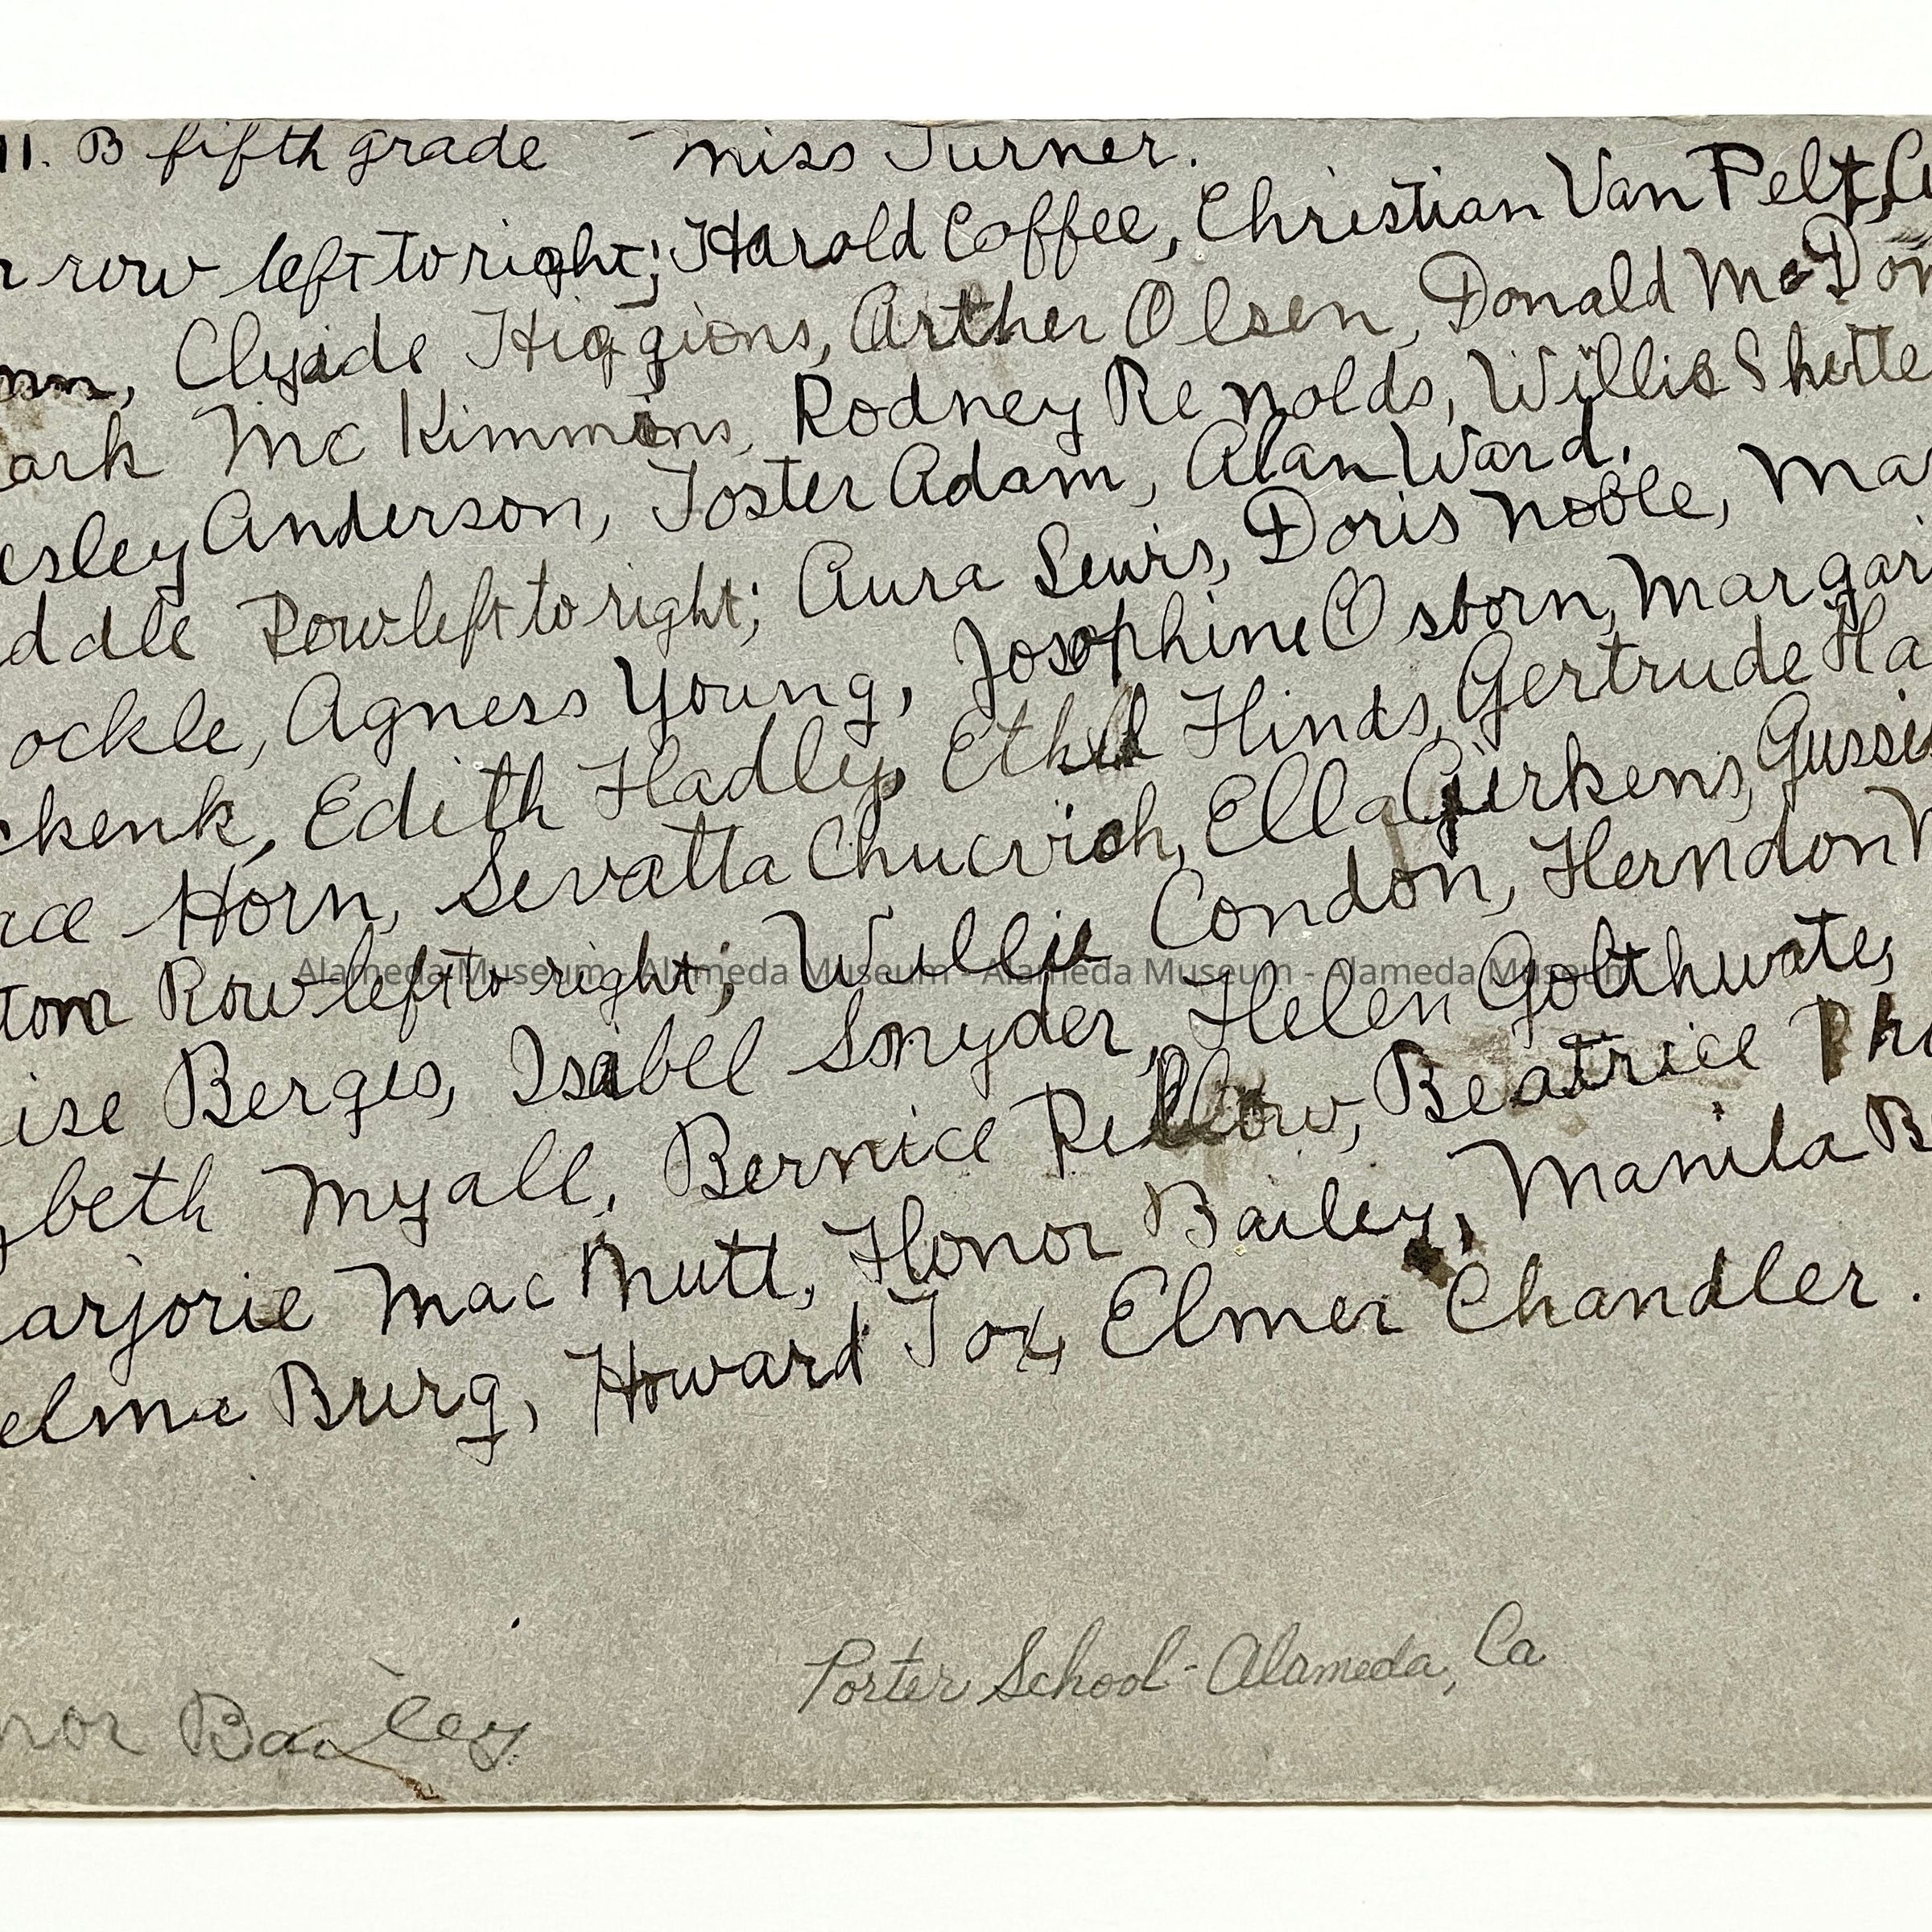 11. B fifth grade - Miss Turner.
row left to right; Harold Coffee, Christian Van Pelt,
Clyde Higgions, Arther Olsen, Donald McDon
ark McKimmins, Rodney Renolds, Willis Shutte
esley Anderson, Foster Adam, Alan Ward.
ddle Row left to right; Aura Lewis, Doris Noble, Mar
ockle, Agness Young, Josophine Osborn, Margar
chenk, Edith Hadley, Ethel Hinds, Gertrude Ha
ace Horn, Sevatta Chucvich, Ella Gierkens, Gussi
ttom Row left to right; Willie Condon, Herndon
Alameda Museum - Alameda Museum - Alameda Museum - Alameda Museum
ise Berges, Isabel Snyder, Helen Golthwate,
beth Myall, Bernice Rellow, Beatrice
arjorie MacNutt, Honor Bailey, Manila B
elma Burg, Howard Fox, Elmer Chandler.
Porter School - Alameda, Ca
nor Bailey